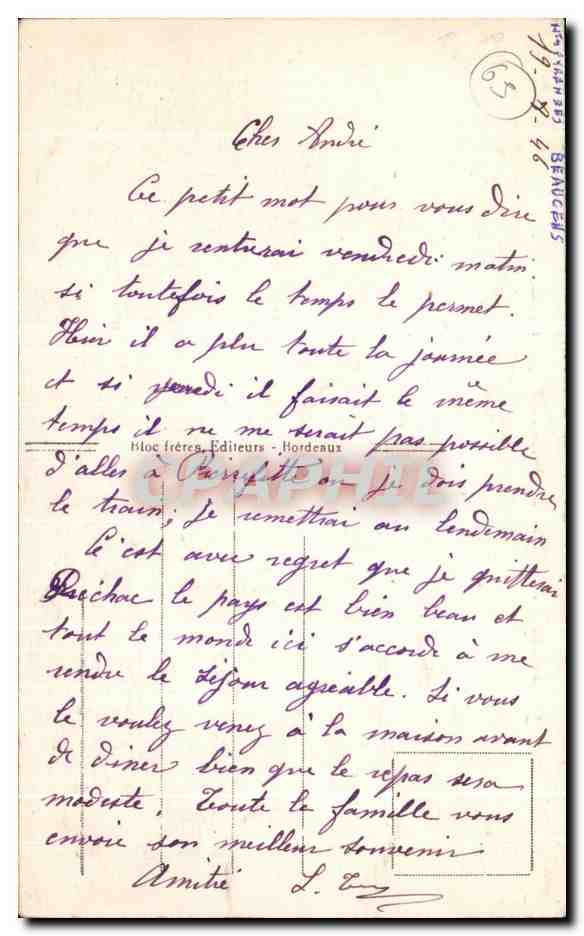 65
Htes PYRENEES BEAUCENS
19-8-46
Cher André
Ce petit mot pour vous dire
que je rentrerai vendredi matin.
si toutefois le temps le permet.
Hier il a plu toute la journée
et si il faisait le même
temps il ne me serait pas possible
Bloc frères, Editeurs - Bordeaux
d'aller à Pierrefitte ou je dois prendre
le train; je remettrai au lendemain
C'est avec regret que je quitterai
Préchac le pays est bien beau et
tout le monde ici s'accorde à me
rendre le séjour agréable. Si vous
le voulez venez à la maison avant
de diner bien que le repas sera
modeste. Toute la famille vous
envoie son meilleur souvenir
Amitié L.
CPARAMA